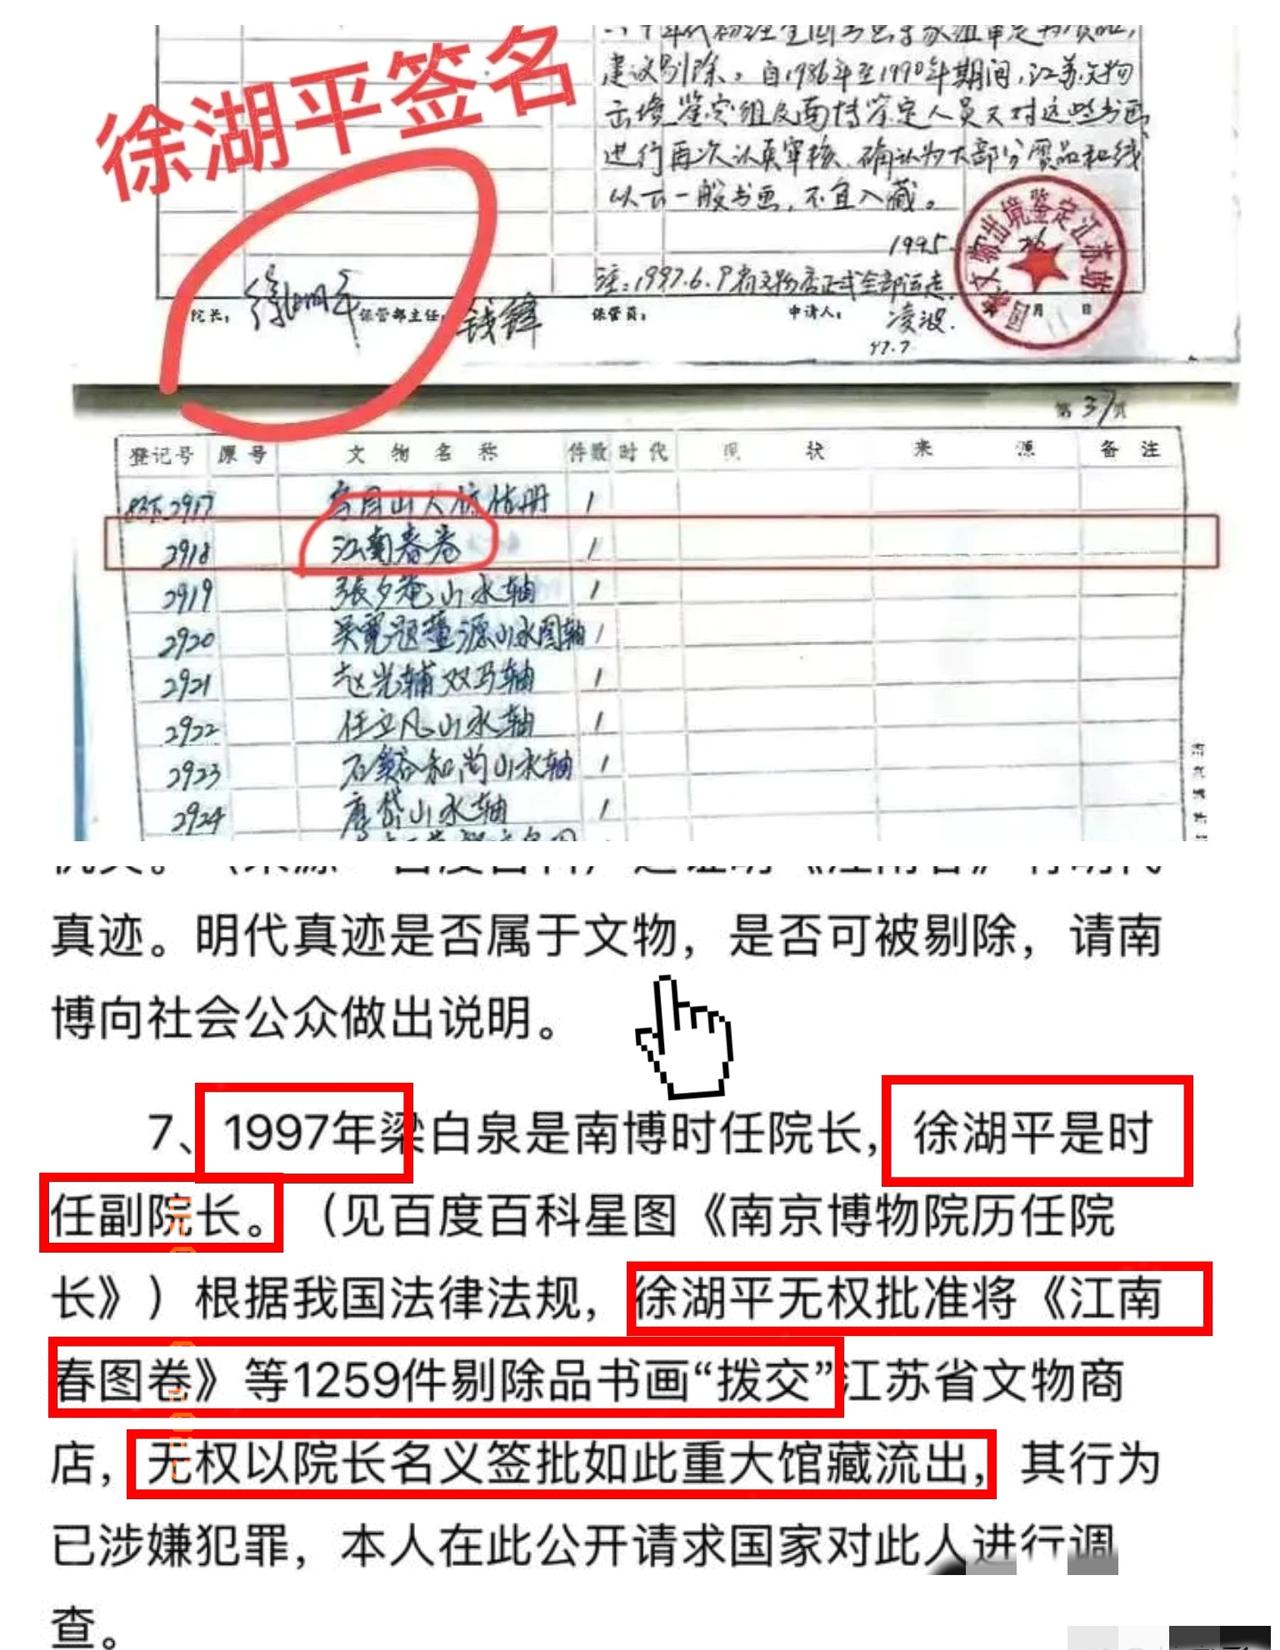 徐湖平签名
建议剔除。自1986年至1990年期间,江苏文物
出境鉴定组及南博鉴定人员又对这些书画
进行再次认真审核,确认为大部分赝品和线
以下一般书画,不宜入藏。
1995.
注:1997.6.9前文物店正式全部运走.
院长: 徐湖平 保管部主任: 钱锋 保管员: 申请人: 凌波.
97.7
国家文物出境鉴定江苏站
月 日
第37页
登记号 原号 文物名称 件数 时代 现状 来源 备注
2917 1
2918 江南春卷 1
2919 张夕庵山水轴 1
2920 吴宽题董源山水图轴 1
2921 赵光辅双马轴 1
2922 任立凡山水轴 1
2923 石溪和尚山水轴 1
2924 唐岱山水轴 1
真迹。明代真迹是否属于文物,是否可被剔除,请南
博向社会公众做出说明。
7、1997年梁白泉是南博时任院长,徐湖平是时
任副院长。(见百度百科星图《南京博物院历任院
长》)根据我国法律法规,徐湖平无权批准将《江南
春图卷》等1259件剔除品书画“拨交”江苏省文物商
店,无权以院长名义签批如此重大馆藏流出,其行为
已涉嫌犯罪,本人在此公开请求国家对此人进行调
查。